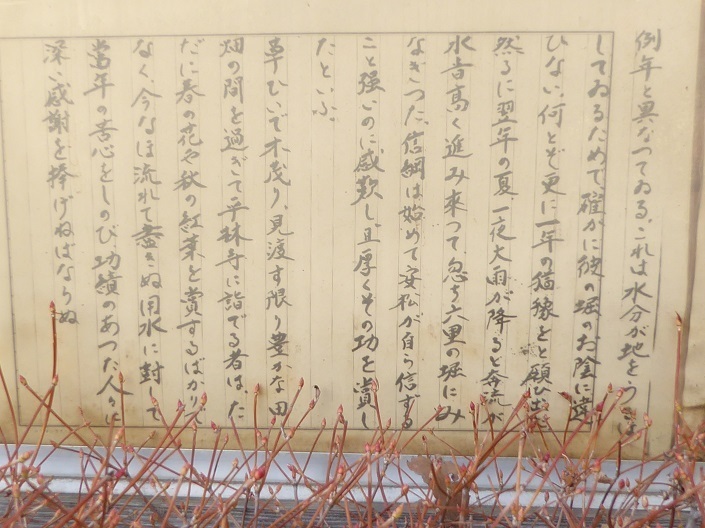 例年と異なつてゐる。これは水分が地をうるほ
してゐるためで、確かに彼の堀のお陰に違
ひない。何とぞ更に一年の猶豫をと願ひ出た
然るに翌年の夏、一夜大雨が降ると奔流が
水音高く進み来つて、忽ち六里の堀にみ
なぎつた。信綱は始めて安松が自ら信ずる
こと強いのに感歎し、且厚くその功を賞し
たといふ。
草ひいで木茂り、見渡す限り豊かな田
畑の間を過ぎて平林寺に詣でる者は、た
だに春の花や秋の紅葉を賞するばかりで
なく、今なほ流れて盡きぬ用水に対して
當年の苦心をしのび、功績のあつた人々に
深い感謝を捧げねばならぬ